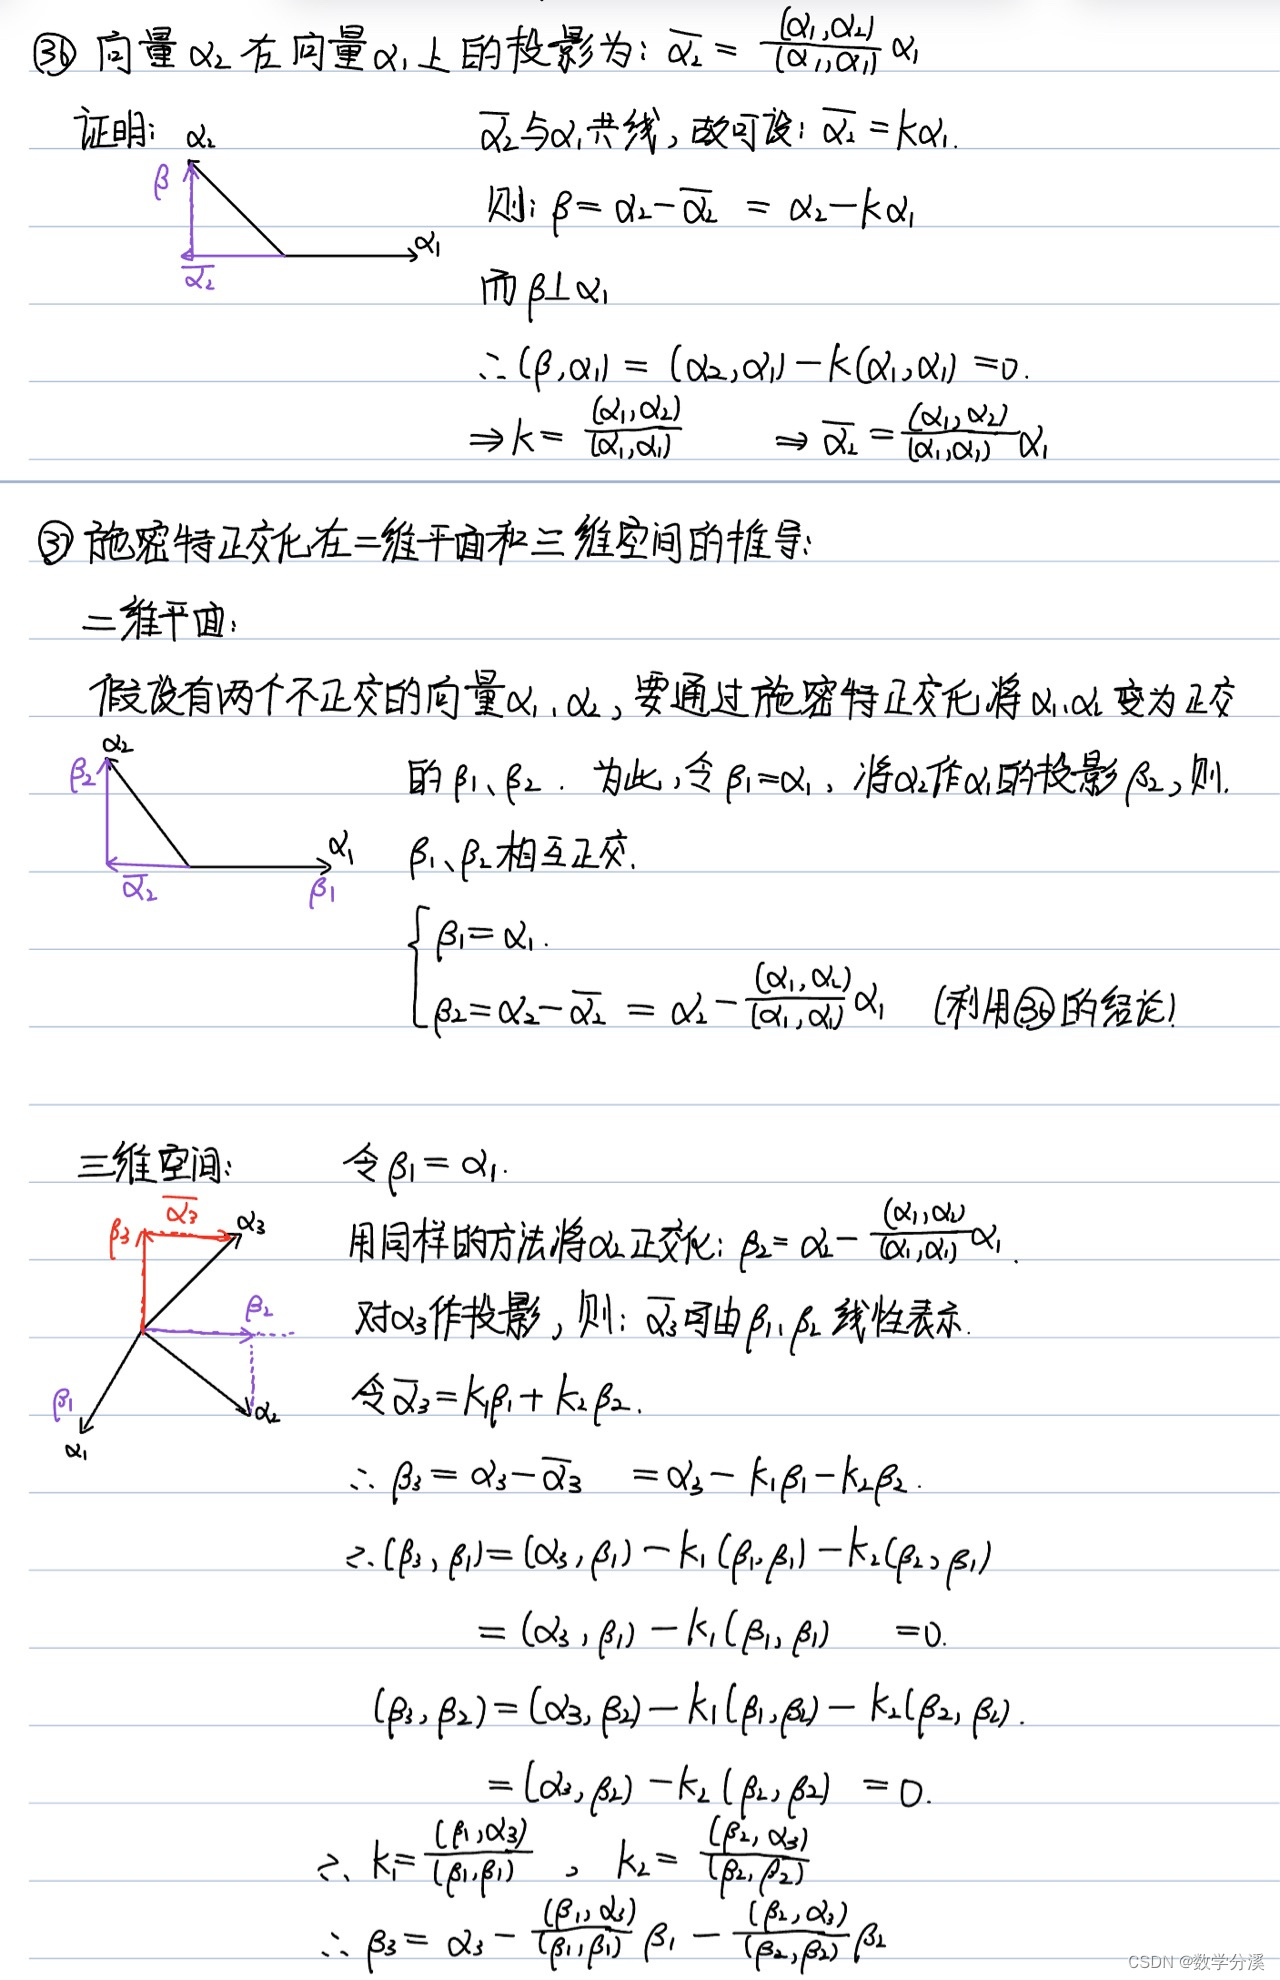 ㊱ 向量α₂在向量α₁上的投影为: \overline{α₂} = \frac{(α₁,α₂)}{(α₁,α₁)} α₁
证明:
α₂
β
\overline{α₂}
α₁
\overline{α₂}与α₁共线, 故可设: \overline{α₂} = kα₁.
则: β = α₂ - \overline{α₂} = α₂ - kα₁
而 β⊥α₁
∴ (β,α₁) = (α₂,α₁) - k(α₁,α₁) = 0.
⇒ k = \frac{(α₁,α₂)}{(α₁,α₁)} ⇒ \overline{α₂} = \frac{(α₁,α₂)}{(α₁,α₁)} α₁
㊲ 施密特正交化在二维平面和三维空间的推导:
二维平面:
假设有两个不正交的向量α₁、α₂, 要通过施密特正交化将α₁、α₂变为正交
α₂
β₂
\overline{α₂}
α₁
β₁
的β₁、β₂. 为此, 令β₁=α₁, 将α₂作α₁的投影β₂, 则.
β₁、β₂相互正交.
β₁ = α₁.
β₂ = α₂ - \overline{α₂} = α₂ - \frac{(α₁,α₂)}{(α₁,α₁)} α₁ (利用㊱的结论)
三维空间:
令β₁ = α₁.
\overline{α₃}
β₃
α₃
β₂
β₁
α₁
α₂
用同样的方法将α₂正交化: β₂ = α₂ - \frac{(α₁,α₂)}{(α₁,α₁)} α₁.
对α₃作投影, 则: \overline{α₃}可由β₁、β₂线性表示.
令\overline{α₃} = k₁β₁ + k₂β₂.
∴ β₃ = α₃ - \overline{α₃} = α₃ - k₁β₁ - k₂β₂.
∴ (β₃,β₁) = (α₃,β₁) - k₁(β₁,β₁) - k₂(β₂,β₁)
= (α₃,β₁) - k₁(β₁,β₁) = 0.
(β₃,β₂) = (α₃,β₂) - k₁(β₁,β₂) - k₂(β₂,β₂).
= (α₃,β₂) - k₂(β₂,β₂) = 0.
∴ k₁ = \frac{(β₁,α₃)}{(β₁,β₁)}, k₂ = \frac{(β₂,α₃)}{(β₂,β₂)}
∴ β₃ = α₃ - \frac{(β₁,α₃)}{(β₁,β₁)} β₁ - \frac{(β₂,α₃)}{(β₂,β₂)} β₂
CSDN @数学分溪